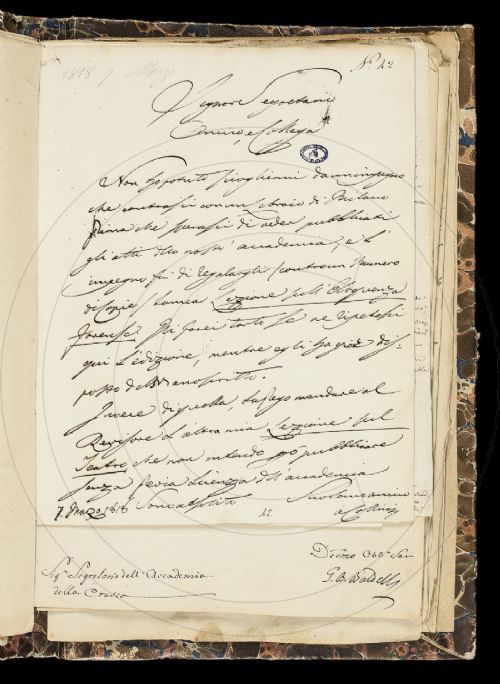 1818 7. Marzo
N.° 42
Signore Segretario
Amico, e Collega
Non ho potuto sciogliermi da un impegno
che contrassi con un Libraio di Milano
prima che si di veder pubblicati
gli atti della nostr' accademia; e l'
impegno fu di regalargli (contro un numero
di copie) la mia Lezione sull' Eloquenza
Forense. Gli farei torto se ne ripetessi
qui l'edizione, mentre egli ha già dis-
posto del Manoscritto.
In vece di quella, la prego mandare al
Revisore l'altra mia Lezione sul
Teatro, che non intendo pubblicare
senza previa licenza dell' accademia
7. Marzo 1818
Suo amico
e Collega
42.
Sig.r Segretario dell' Accademia
della Crusca
Devmo Obb.o Ser
G. B. Baldelli